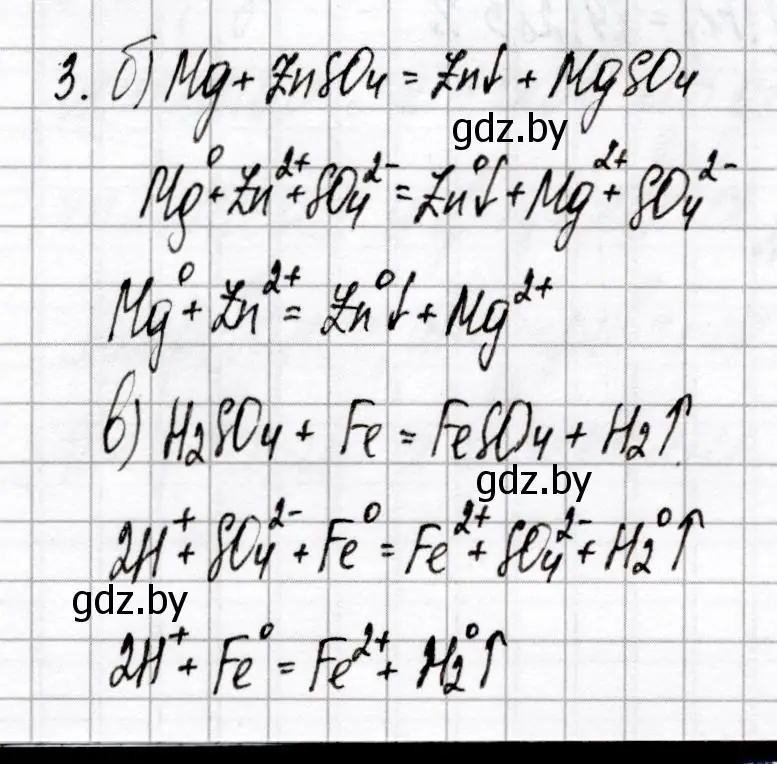 3. б) Mg + ZnSO₄ = Zn↓ + MgSO₄
gdz.by
Mg⁰ + Zn²⁺ + SO₄²⁻ = Zn⁰↓ + Mg²⁺ + SO₄²⁻
Mg⁰ + Zn²⁺ = Zn⁰↓ + Mg²⁺
в) H₂SO₄ + Fe = FeSO₄ + H₂↑
gdz.by
2H⁺ + SO₄²⁻ + Fe⁰ = Fe²⁺ + SO₄²⁻ + H₂⁰↑
gdz.by
2H⁺ + Fe⁰ = Fe²⁺ + H₂⁰↑